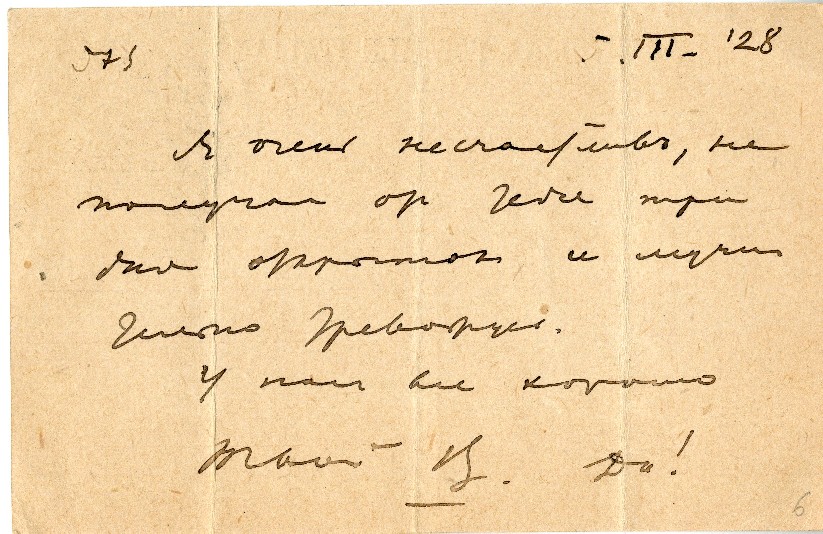 573 5.III.-'28
Я очень несчастливъ, не
получая от тебе три
дня открыток и мучи
тельно тревожусь.
У нас все хорошо
Твой В. Да!
6